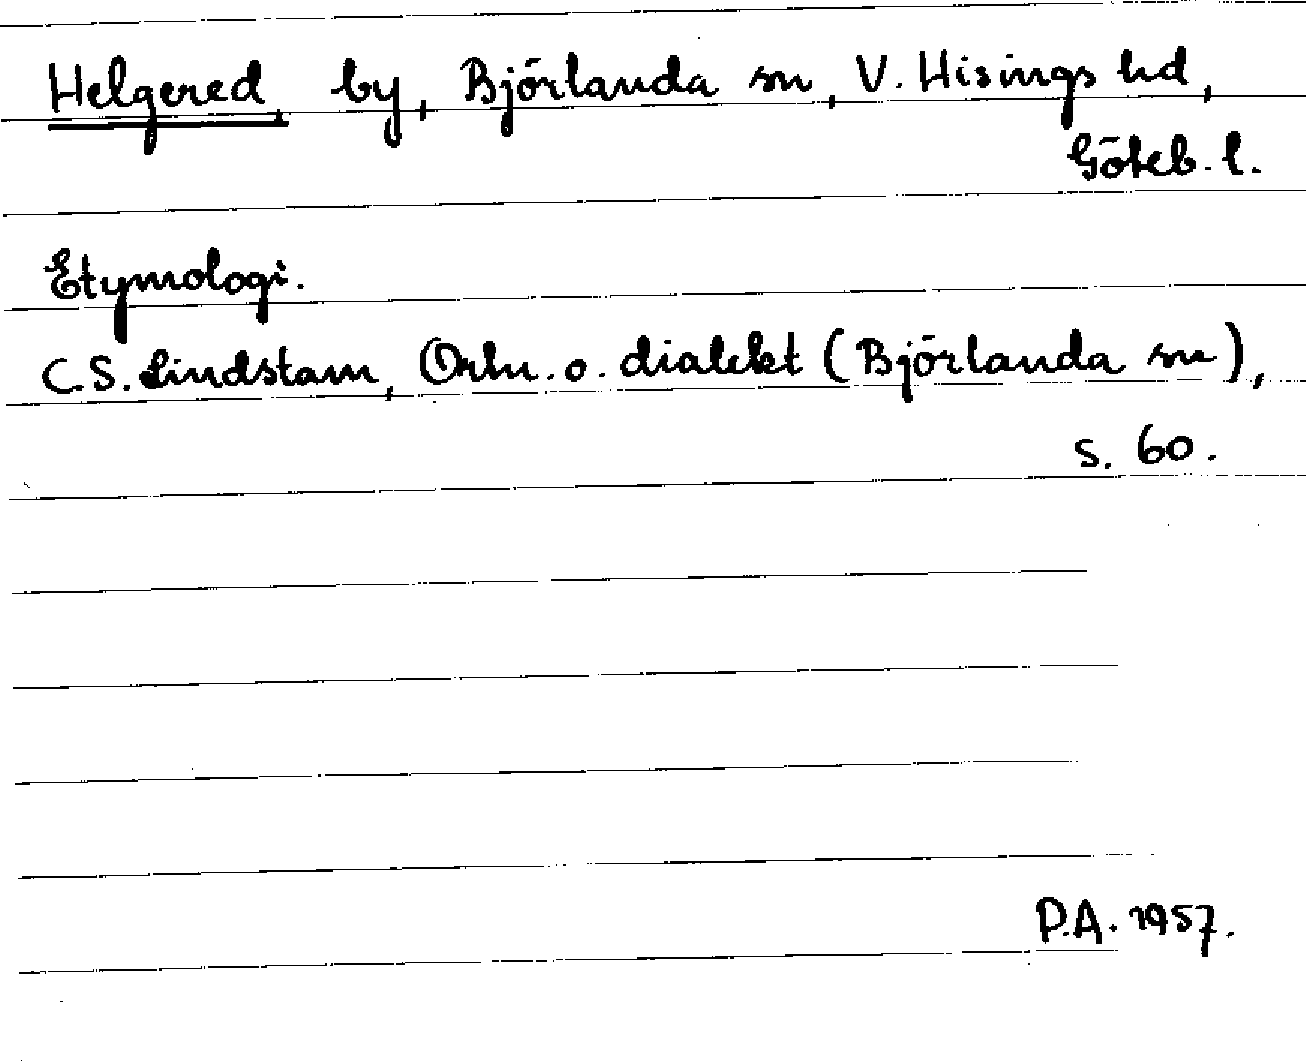 Helgered, by, Björlanda sn, V. Hisings hd,
Göteb. l.
Etymologi.
C.S. Lindstam, Ortn. o. dialekt (Björlanda sn),
s. 60.
P.A. 1957.